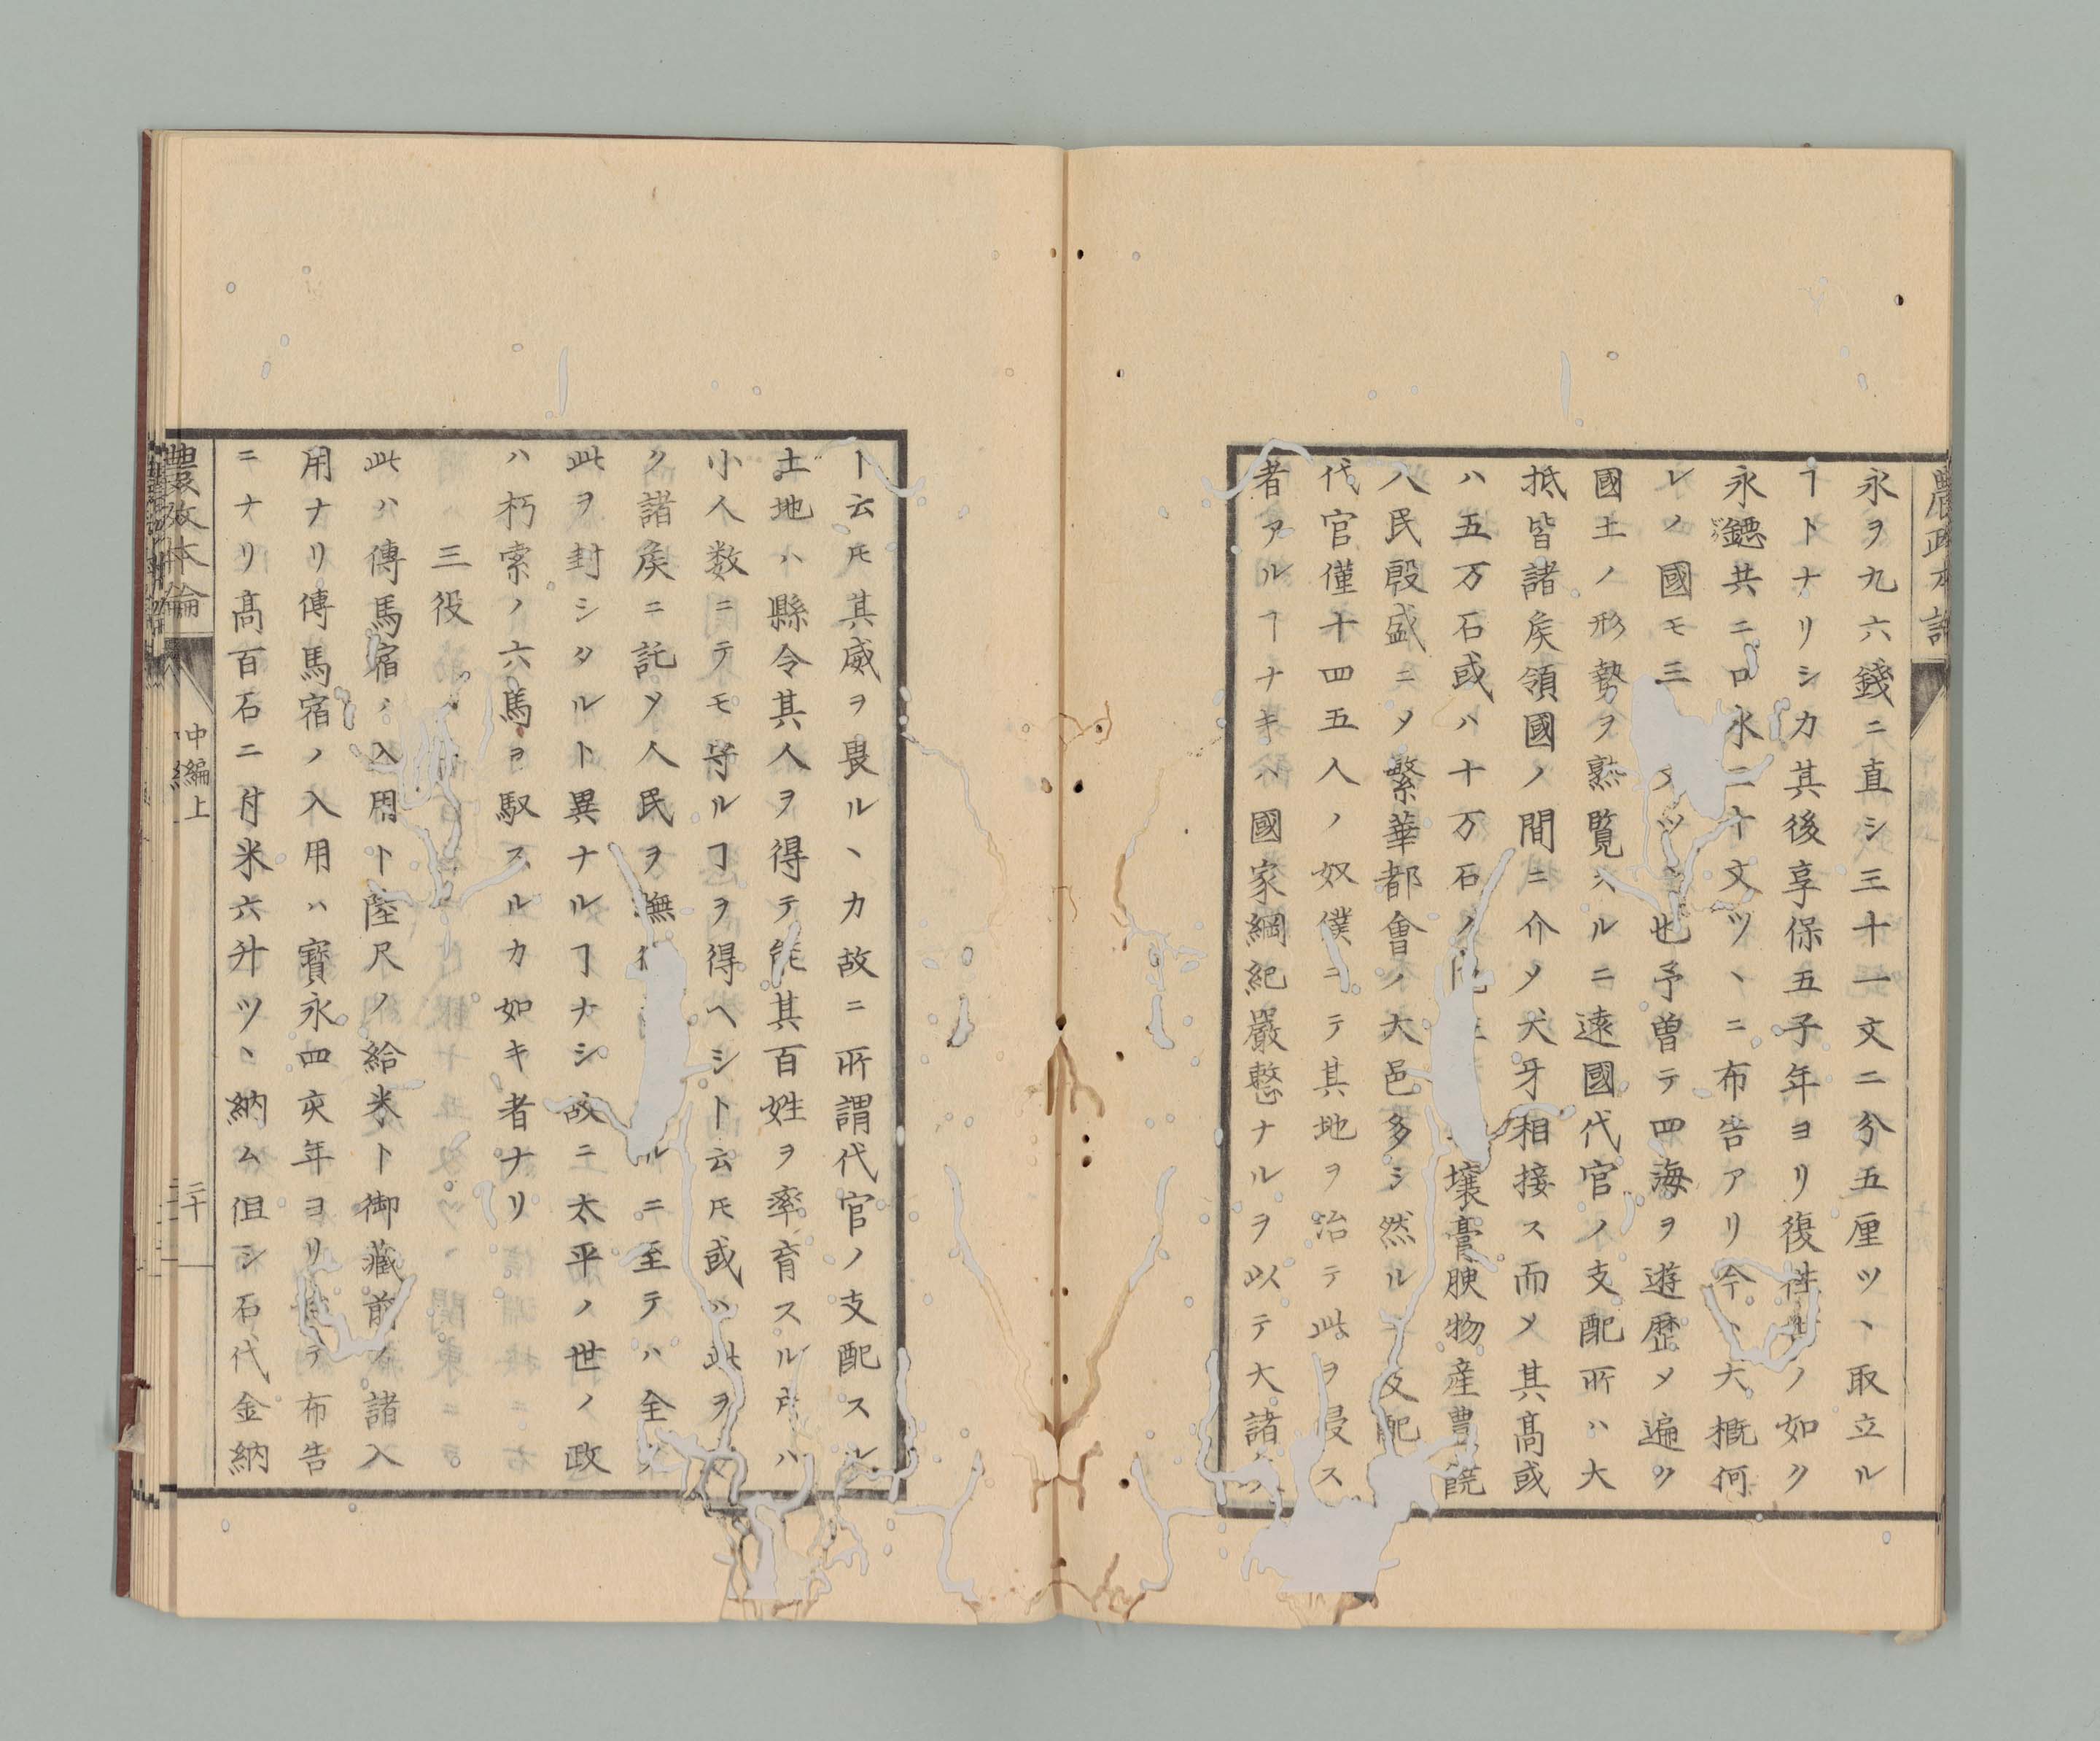 農政本論
永ヲ九六錢ニ直シ三十一文二分五厘ツヽ取立ル
ヿトナリシカ其後享保五子年ヨリ復徃ノ如ク
永鐚共ニロ永二十文ツヽニ布告アリ今ハ大概何
レノ國モ三ツヽ也予曽テ四海ヲ遊歴〆遍ク
國土ノ形勢ヲ熟覧スルニ遠國代官ノ支配所ハ大
抵皆諸矦領國ノ間ニ介〆犬牙相接ス而〆其高或
ハ五万石或ハ十万石ノ壌膏腴物産豊饒
人民殷盛ニ〆繁華都會ノ大邑多シ然ルニ支配
代官僅十四五人ノ奴僕ニテ其地ヲ治テ此ヲ侵ス
者アルヿナキハ國家綱紀嚴整ナルヲ以テ大諸
ト云𪜈其威ヲ畏ルヽカ故ニ所謂代官ノ支配スル
土地ハ縣令其人ヲ得テ能其百姓ヲ率育スル𪜈ハ
小人数ニテモ守ルヿヲ得ヘシト云𪜈或ハ此ヲ
ク諸矦ニ託〆人民ヲ撫ルニ至テハ全ク
此ヲ封シタルト異ナルヿナシ故ニ太平ノ世ノ政
ハ朽索ノ六馬ヲ馭スルカ如キ者ナリ
三役
此ハ傳馬宿ノ入用ト陸尺ノ給米ト御藏前ノ諸入
用ナリ傳馬宿ノ入用ハ寶永四亥年ヨリテ布告
ニナリ高百石ニ付米六升ツヽ納ム但シ石代金納
農政本論
中編上
二十